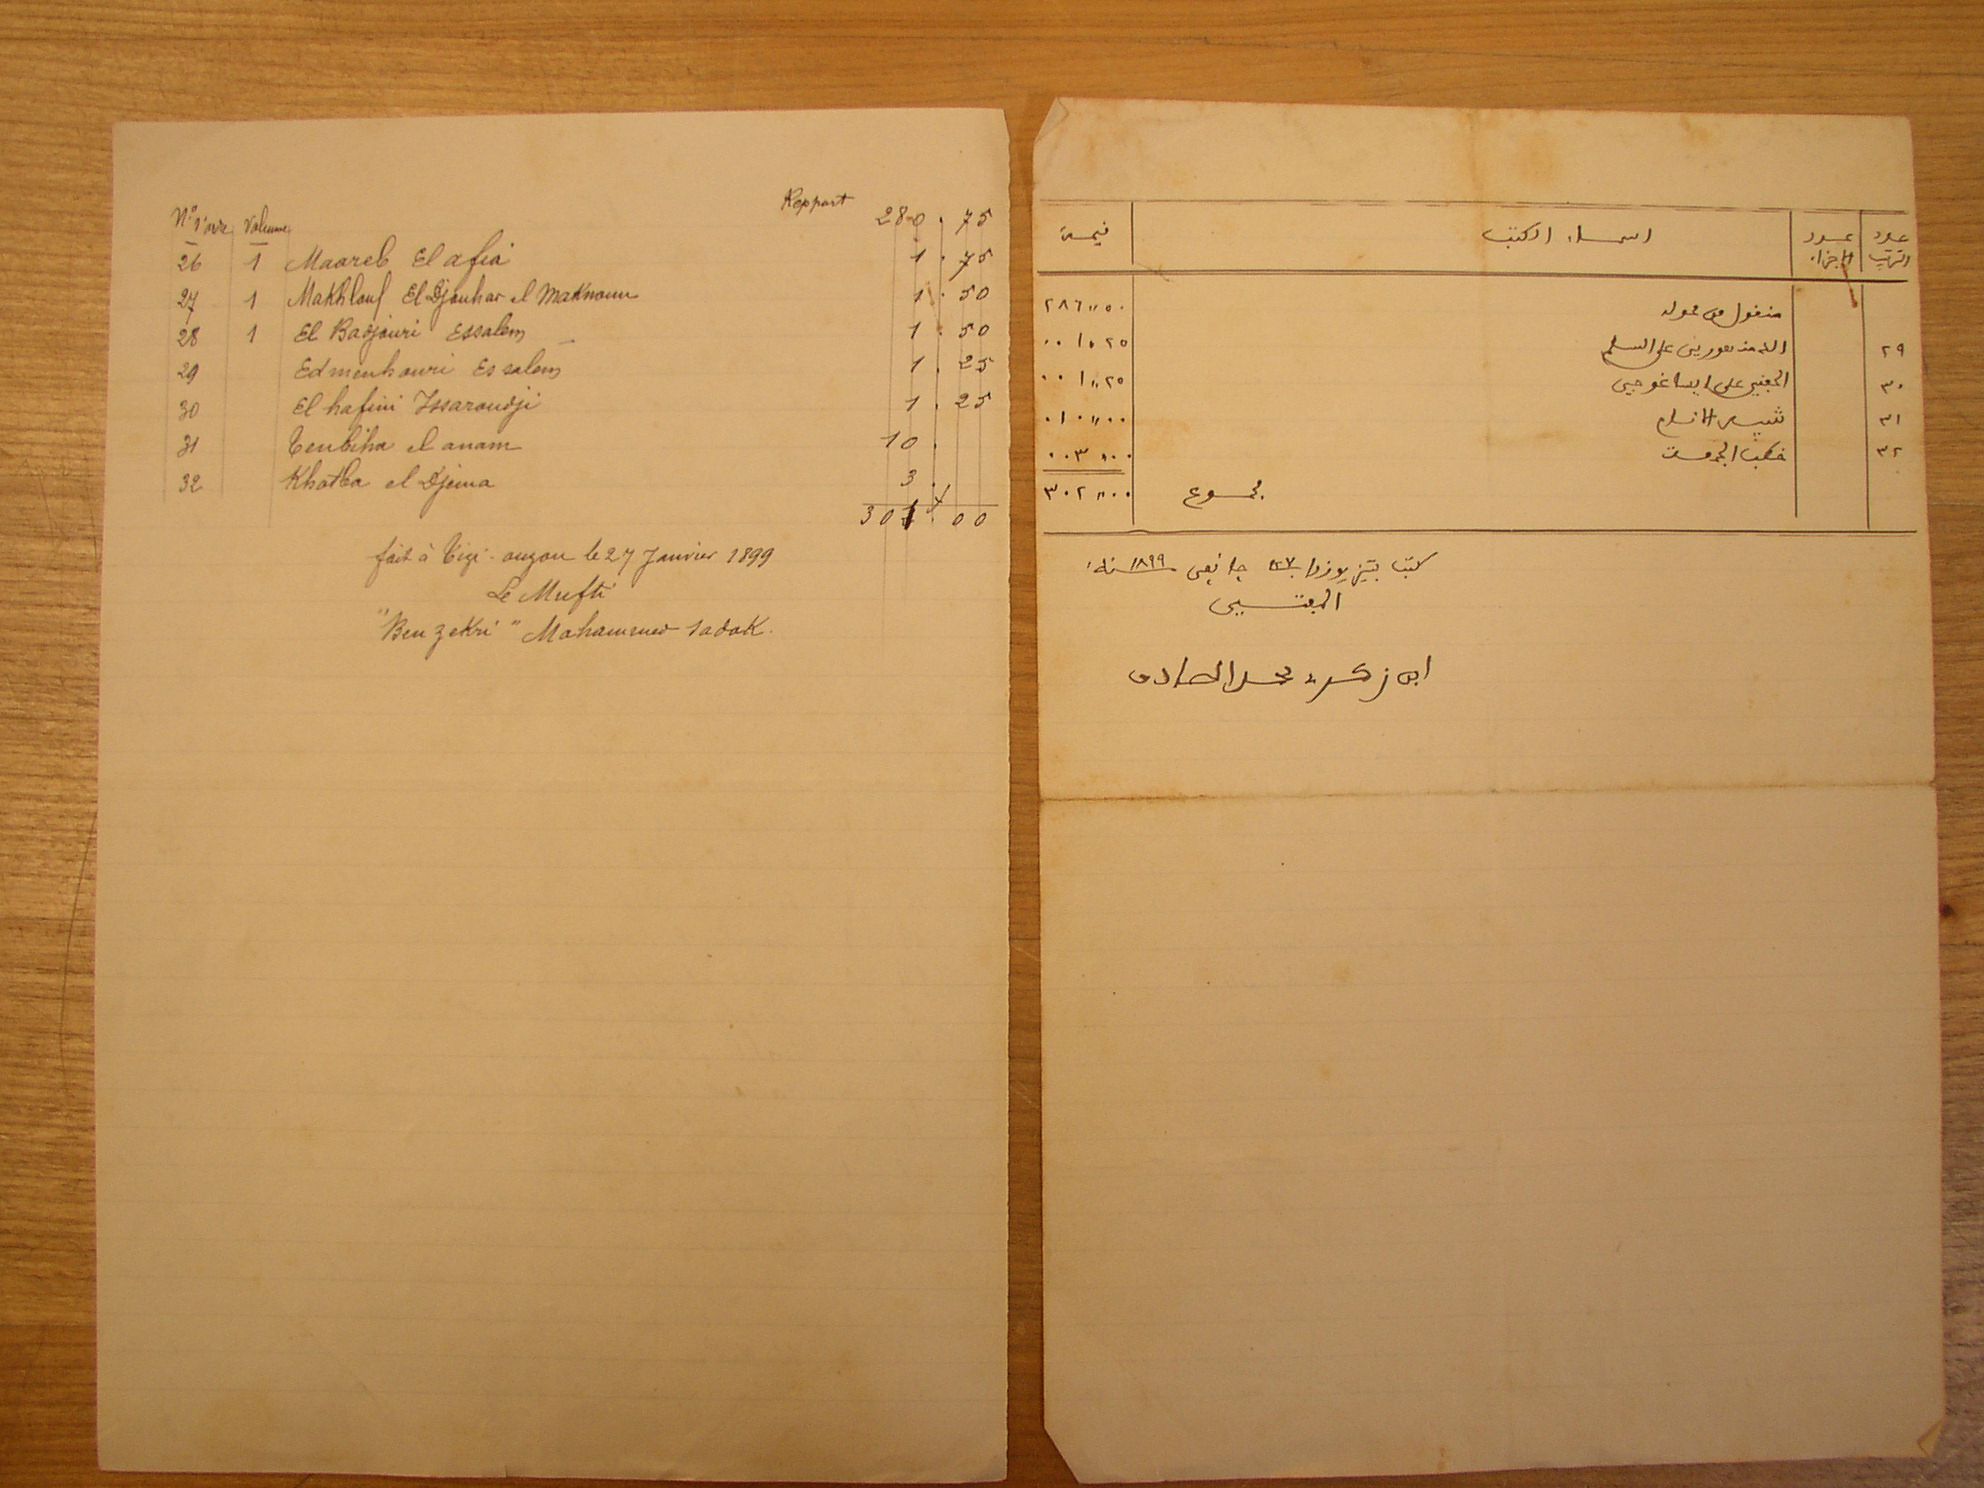 Report 280.75
N° d'ordre Volume
26 1 Maareb El afia 1.75
27 1 Makhlouf El Djouhar el Maknoun 1.50
28 1 El Badjouri Essalem 1.50
29 Edmenhouri Essalem 1.25
30 El hafini Issaroudji 1.25
31 Tenbiha el anam 10.
32 Khotba el Djema 3.
302.00
fait à Tizi-ouzou le 27 Janvier 1899
Le Mufti
"Ben zekri" Mohammed Sadok.
عدد الترتيب عدد الاجزاء اسماء الكتب قيمة
منقول من محوله ٢٨٦,,٥٠
٢٩ الدمنهوري على السلم ٠٠١,,٢٥
٣٠ الحفني على ايساغوجي ٠٠١,,٢٥
٣١ تنبيه الانام ٠١٠,,٠٠
٣٢ خطب الجمعة ٠٠٣,,٠٠
مجموع ٣٠٢,,٠٠
كتب بتيزيوزو ٢٧ جانفي سنة ١٨٩٩
المفتي
ابن زكري محمد الصادق